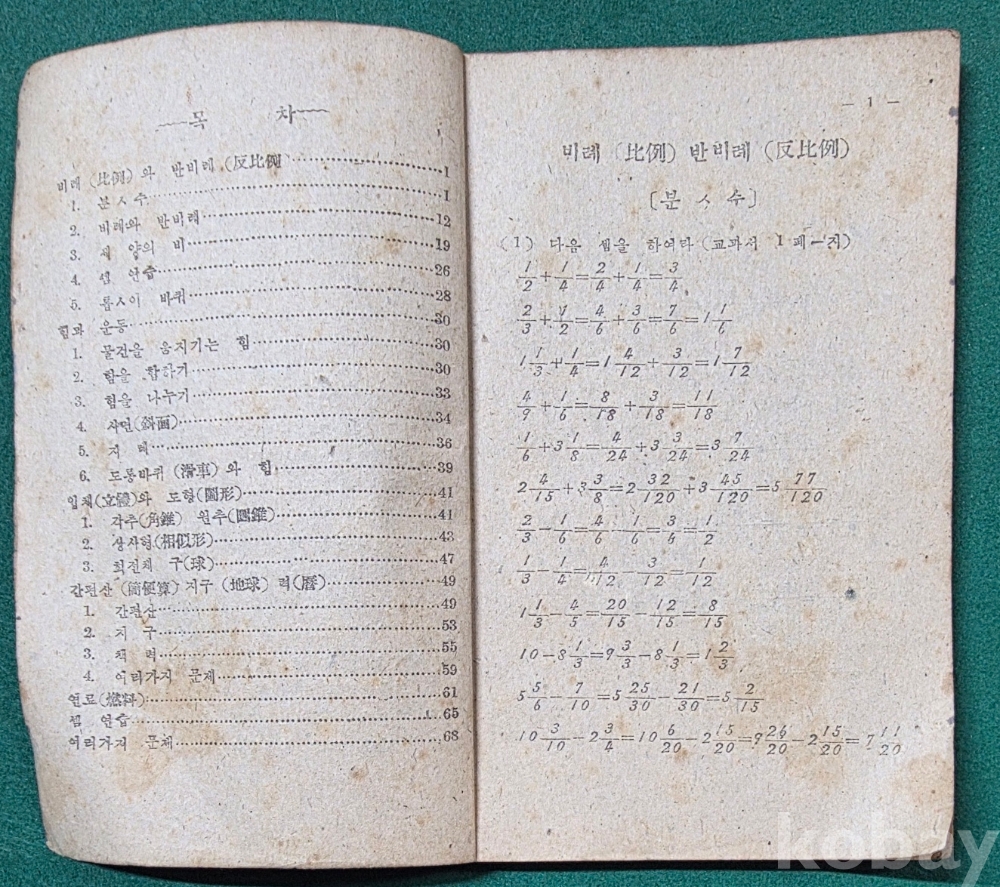 목 차
비례 (比例) 와 반비례 (反比例 ········ 1
1. 분ㅅ수 ········ 1
2. 비례와 반비례 ········ 12
3. 세 양의 비 ········ 19
4. 셈 연습 ········ 26
5. 톱ㅅ이 바퀴 ········ 28
힘과 운동 ········ 30
1. 물건을 움지기는 힘 ········ 30
2. 힘을 합하기 ········ 30
3. 힘을 나누기 ········ 33
4. 사면(斜面) ········ 34
5. 지 레 ········ 36
6. 도롱바퀴 (滑車) 와 힘 ········ 39
입체(立體)와 도형(圖形) ········ 41
1. 각추(角錐) 원추(圓錐) ········ 41
2. 상사형(相似形) ········ 43
3. 회전체 구(球) ········ 47
간편산 (簡便算) 지구 (地球) 력(曆) ········ 49
1. 간편산 ········ 49
2. 지 구 ········ 53
3. 책 력 ········ 55
4. 여러가지 문제 ········ 59
연료(燃料) ········ 61
셈 연습 ········ 65
여러가지 문제 ········ 68
— 1 —
비례 (比例) 반비례 (反比例)
〔분 ㅅ 수〕
(1) 다음 셈을 하여라 (교과서 1 페-지)
1/2 + 1/4 = 2/4 + 1/4 = 3/4
2/3 + 1/2 = 4/6 + 3/6 = 7/6 = 1 1/6
1 1/3 + 1/4 = 1 4/12 + 3/12 = 1 7/12
4/9 + 1/6 = 8/18 + 3/18 = 11/18
1/6 + 3 1/8 = 4/24 + 3 3/24 = 3 7/24
2 4/15 + 3 3/8 = 2 32/120 + 3 45/120 = 5 77/120
2/3 − 1/6 = 4/6 − 1/6 = 3/6 = 1/2
1/3 − 1/4 = 4/12 − 3/12 = 1/12
1 1/3 − 4/5 = 20/15 − 12/15 = 8/15
10 − 8 1/3 = 9 3/3 − 8 1/3 = 1 2/3
5 5/6 − 7/10 = 5 25/30 − 21/30 = 5 2/15
10 3/10 − 2 3/4 = 10 6/20 − 2 15/20 = 9 26/20 − 2 15/20 = 7 11/20
kobay